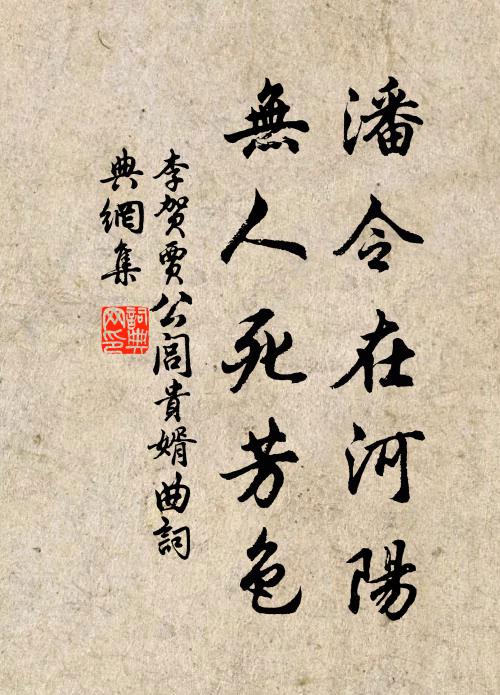 潘令在河陽
無人死芳色
李賀賈公閭貴婿曲詞
典網集
詞典
网印